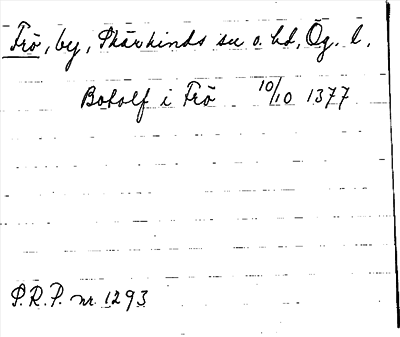 Frö, by, Skärkinds sn o. hd, Ög. l.
Botolf i Frö 10/10 1377
P.R.P. nr 1293